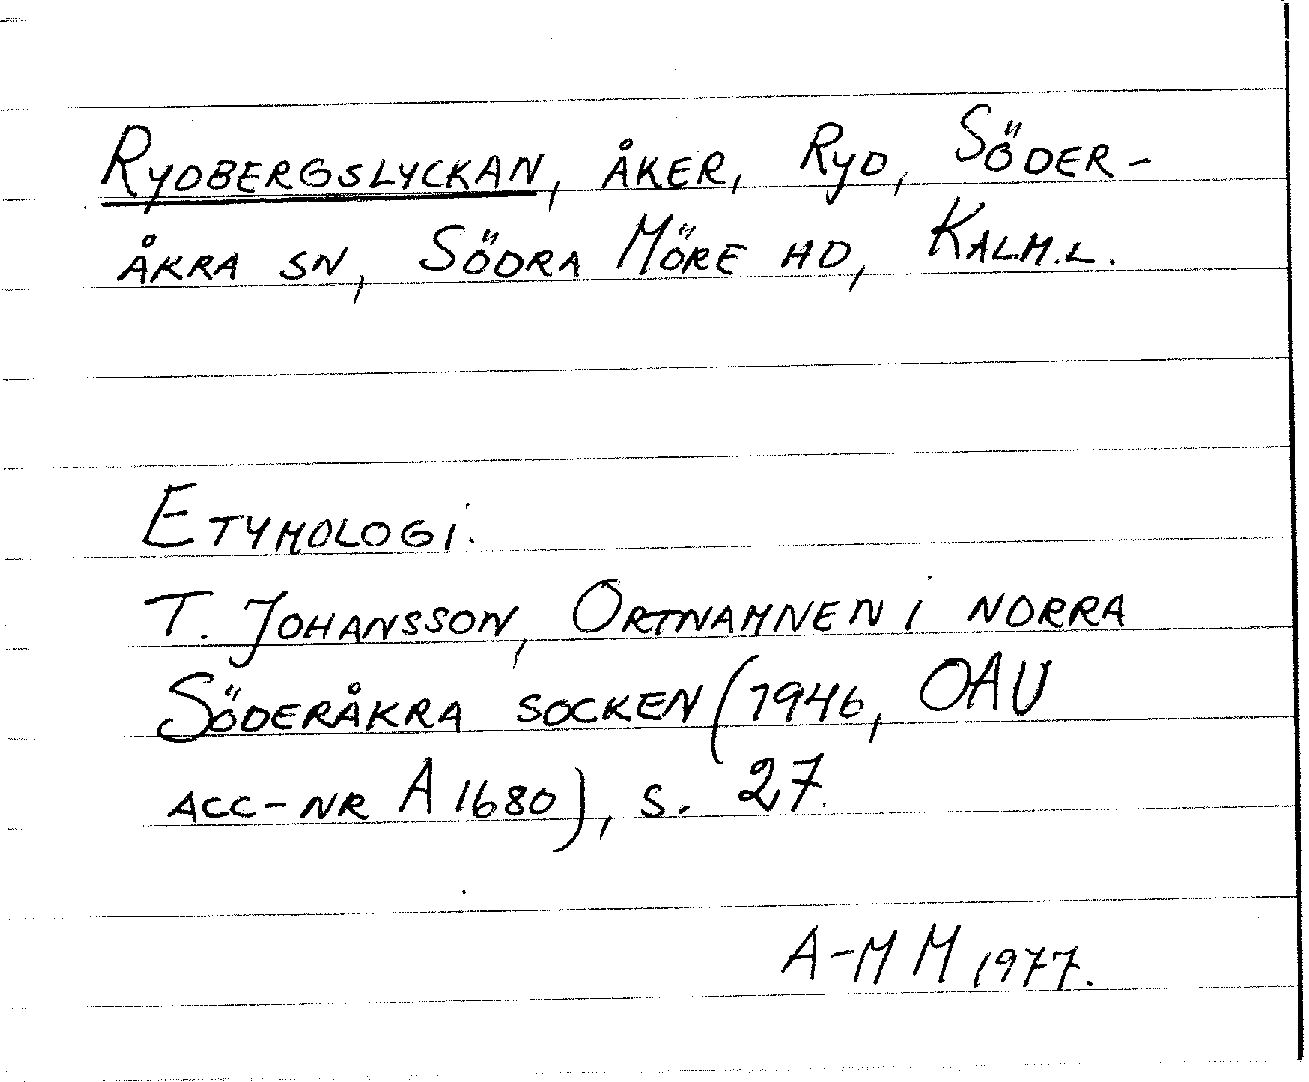 RYDBERGSLYCKAN, ÅKER, RYD, SÖDER-
ÅKRA SN, SÖDRA MÖRE HD, KALM.L.
ETYMOLOGI.
T. JOHANSSON, ORTNAMNEN I NORRA
SÖDERÅKRA SOCKEN (1946, OAU
ACC-NR A 1680), S. 27.
A-M M 1977.